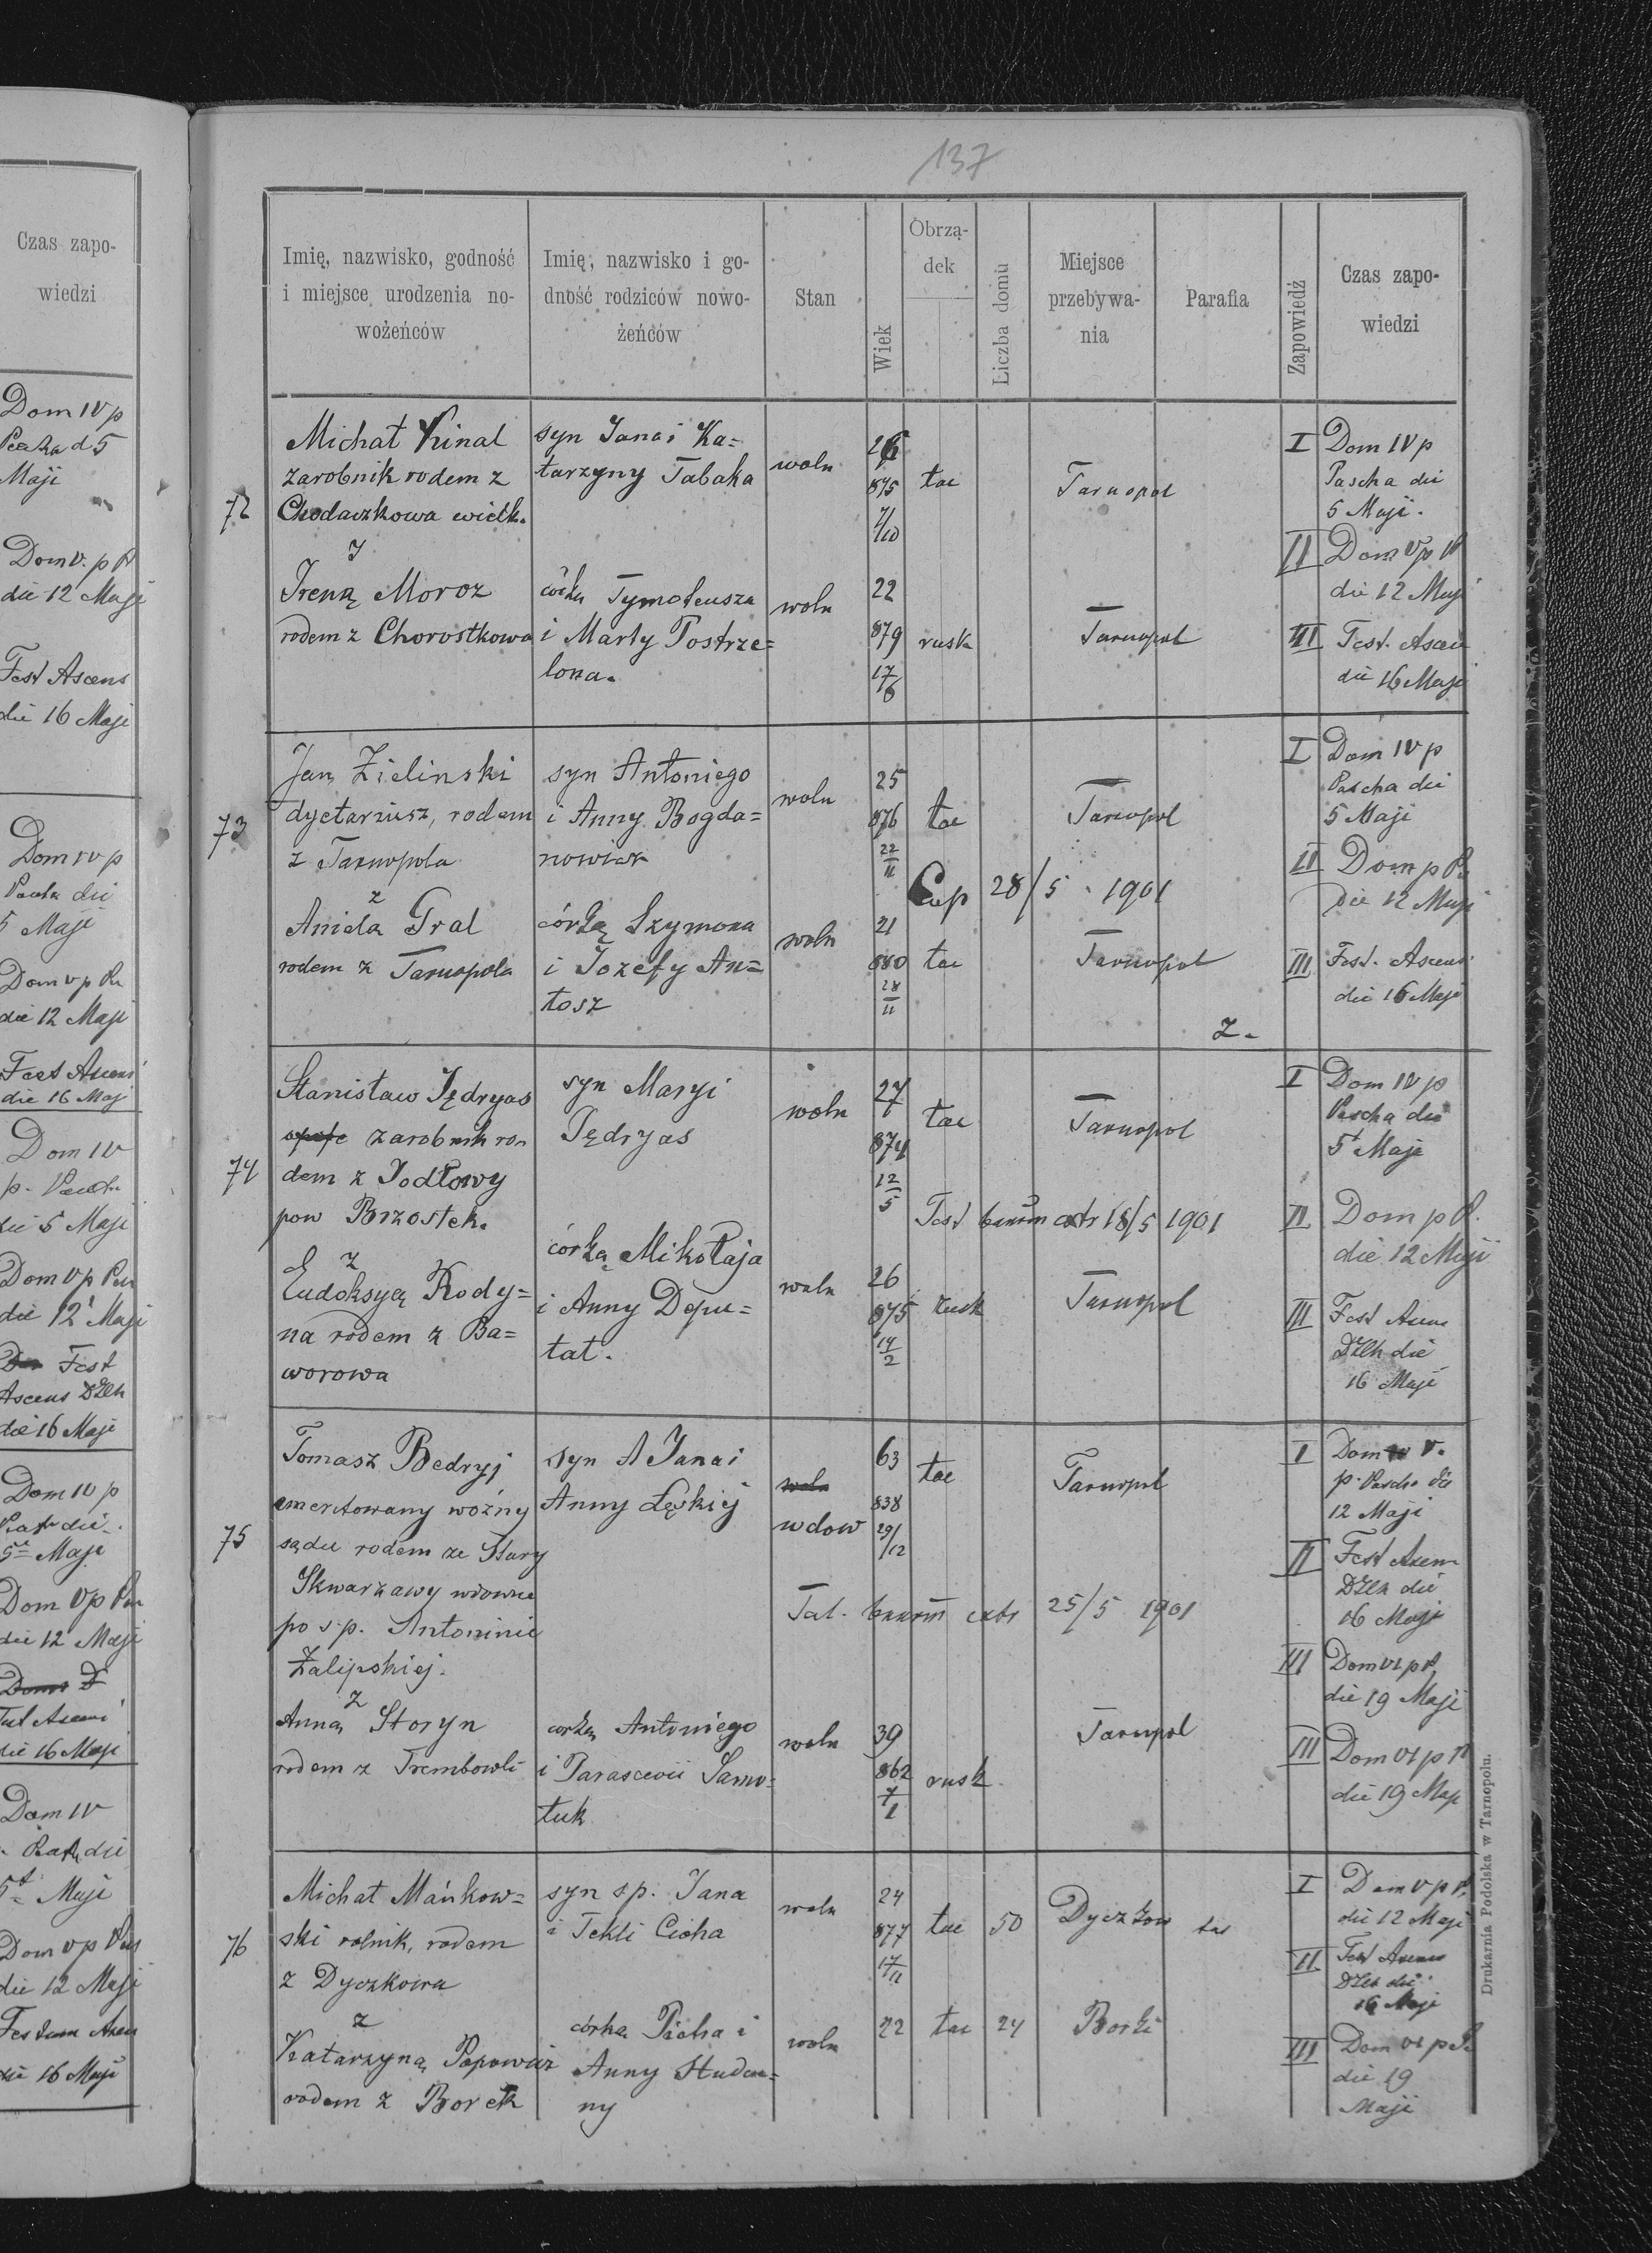 Czas zapo-
wiedzi
Dom IV p
d 5
Maji
Dom V. p P
die 12 Maji
Fest Ascens
die 16 Maji
Dom IV p
die
5 Maji
Dom V p
die 12 Maji
Fest Ascens
die 16 Maj
Dom IV
p.
die 5 Maji
Dom V p
die 12 Maji
Fest
Ascens
die 16 Maji
Dom IV p
die
5 Maji
Dom V p
die 12 Maji
die 16 Maji
Dom IV
die
5 Maji
Dom V p
die 12 Maji
Festum Ascen
die 16 Maji
137
Imię, nazwisko, godność
i miejsce urodzenia no-
wożeńców
Imię, nazwisko i go-
dność rodziców nowo-
żeńców
Stan
Wiek
Obrzą-
dek
Liczba domu
Miejsce
przebywa-
nia
Parafia
Zapowiedź
Czas zapo-
wiedzi
72
Michał Kinal
zarobnik rodem z
Chodaczkowa wielk.
syn Jana i Ka=
tarzyny Tabaka
woln
26
875
7/10
łac
Tarnopol
I Dom IV p
Pascha die
5 Maji.
Z
Ireną Moroz
rodem z Chorostkowa
córka Tymoteusza
i Marty Postrze=
lona.
woln
22
879
17/6
rusk
Tarnopol
II Dom V p P
die 12 Maji
III Fest. Ascen
die 16 Maji
73
Jan Zielinski
dyetariusz, rodem
z Tarnopola
syn Antoniego
i Anny Bogda=
nowicz
woln
25
876
22/11
łac
Tarnopol
I Dom IV p
Pascha die
5 Maji
Cop 28/5 1901
z
Aniela Gral
rodem z Tarnopola
córką Szymona
i Jozefy An=
tosz
woln
21
880
28/11
łac
Tarnopol
Z.
II Dom p P.
die 12 Maji
III Fest. Ascens
die 16 Maji
74
Stanisław Jędryas
zarobnik ro-
dem z Jodłowy
pow Brzostek.
syn Maryi
Jędryas
woln
27
874
12/5
łac
Tarnopol
I Dom IV p
Pascha die
5 Maji
Test bannm extr 18/5 1901
z
Eudoksyą Rody=
na rodem z Ba=
worowa
córką Mikołaja
i Anny Depu=
tat.
woln
26
875
14/2
rusk
Tarnopol
II Dom p P.
die 12 Maji
III Fest Ascens
die
16 Maji
75
Tomasz Bedryj
emerytowany woźny
sądu rodem ze Stary
Skwarzawy wdowiec
po s.p. Antoninie
Zalipskiej.
syn Jana i
Anny Łęskiej
woln
wdow
63
838
29/12
łac
Tarnopol
I Dom V.
p. Pascha die
12 Maji
II Fest Ascens
die
16 Maji
III Dom VI p P
die 19 Maji
bannm extr 25/5 1901
z
Anną Storyn
rodem z Trembowli
córką Antoniego
i Parascevii Samo=
tuk
woln
39
862
7/1
rusk.
Tarnopol
III Dom VI p P
die 19 Maji
76
Michał Mańkow=
ski rolnik, rodem
z Dyczkowa
syn sp. Jana
i Tekli Cicha
woln
24
877
17/11
łac
50
Dyczków
I Dom V p P.
die 12 Maji
II Fest Ascens
die
16 Maji
z
Katarzyną Popowicz
rodem z Borek
córka Piotra i
Anny Studen=
ny
woln
22
łac
24
Borki
III Dom VI p P.
die 19
Maji
Drukarnia Podolska w Tarnopolu.